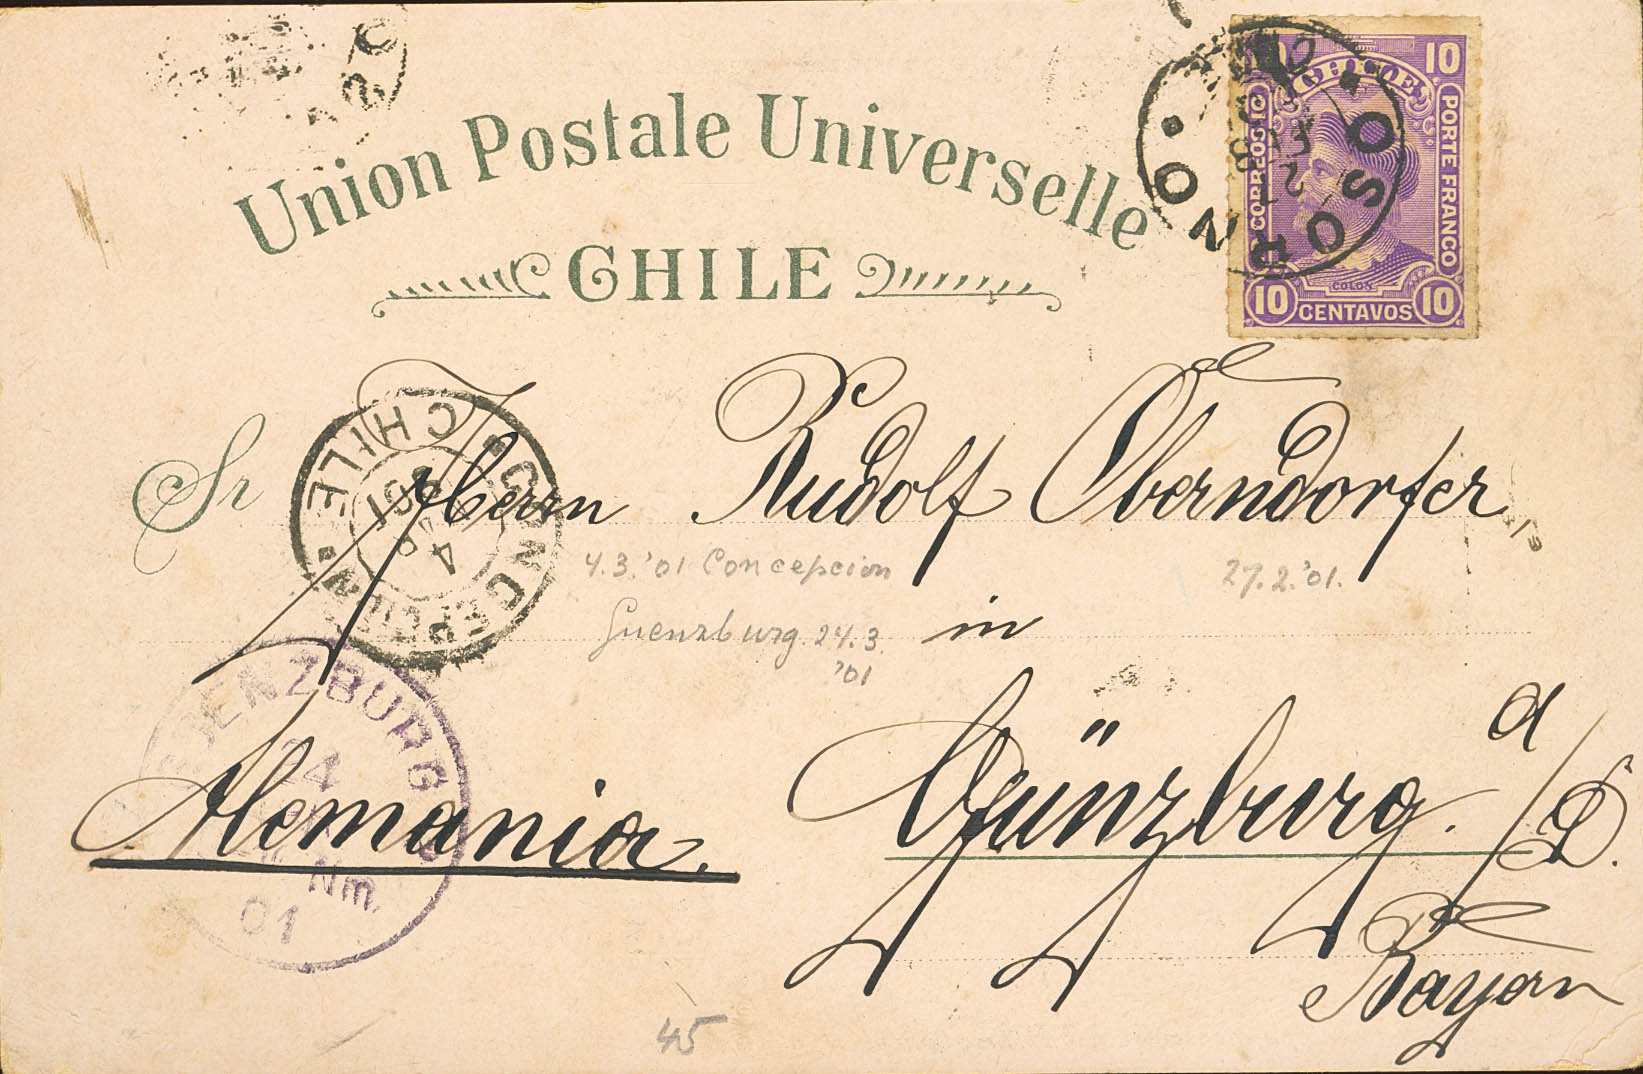 Union Postale Universelle
CHILE
10
CORREOS
PORTE FRANCO
COLON
10 CENTAVOS 10
OSORNO
27 FEB
Sr Herrn Rudolf Oberndorfer
CHILE
CONCEPCION
4
01
4.3.'01 Concepcion
27.2.'01.
Guenzburg 24.3
'01
in
GUENZBURG
24
Nm.
01
Alemania.
Günzburg a/D.
Bayern
45